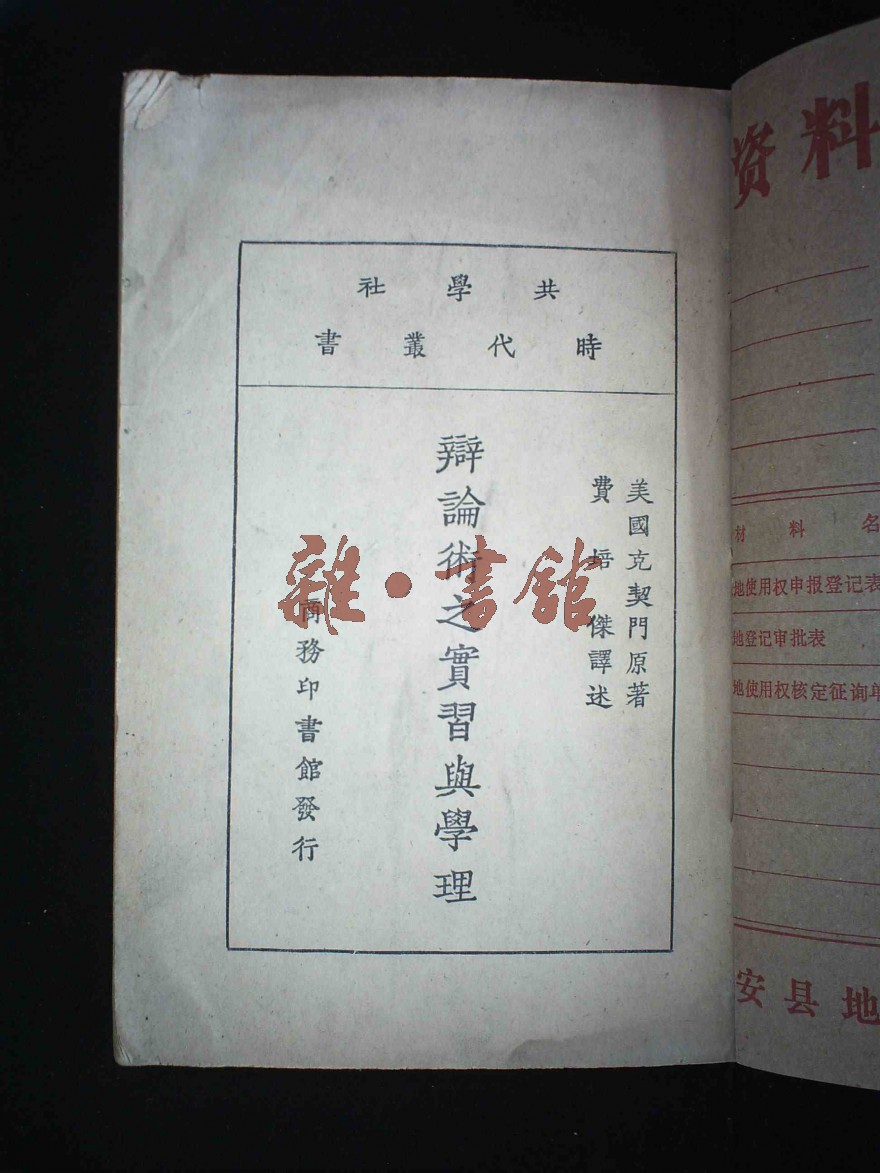 共學社
時代叢書
美國克契門原著
費培傑譯述
辯論術之實習與學理
商務印書館發行
雜·書館
资料
材料名
地使用权申报登记表
地登记审批表
地使用权核定征询单
安县地